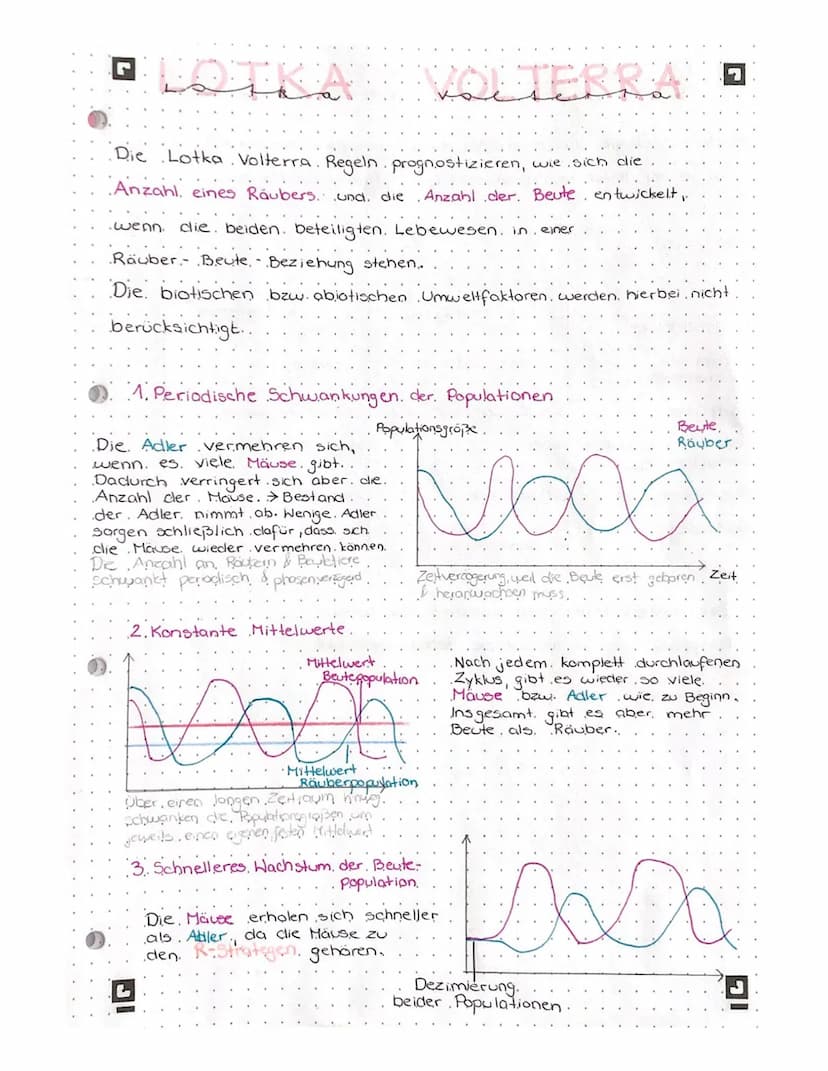 LOTKA VOLTERRA
Lotka Volterra
Die Lotka Volterra Regeln prognostizieren, wie sich die
Anzahl eines Räubers und die Anzahl der Beute entwickelt,
wenn die beiden beteiligten Lebewesen in einer
Räuber- Beute- Beziehung stehen.
Die biotischen bzw. abiotischen Umweltfaktoren werden hierbei nicht
berücksichtigt.
1. Periodische Schwankungen der Populationen
Die Adler vermehren sich,
wenn es viele Mäuse gibt.
Dadurch verringert sich aber die
Anzahl der Mäuse → Bestand
der Adler nimmt ab. Wenige Adler
sorgen schließlich dafür, dass sich
die Mäuse wieder vermehren können.
Die Anzahl an Räubern & Beutetiere
schwankt periodisch & phasenverzögert
Populationsgröße
Beute
Räuber
Zeit
Zeitverzögerung, weil die Beute erst geboren
& heranwachsen muss.
2. Konstante Mittelwerte
Mittelwert
Beutepopulation
Mittelwert
Räuberpopulation
Über einen langen Zeitraum hinweg
schwanken die Populationsgrößen um
jeweils einen eigenen, festen Mittelwert
Nach jedem komplett durchlaufenen
Zyklus gibt es wieder so viele
Mäuse bzw. Adler wie zu Beginn.
Insgesamt gibt es aber mehr
Beute als Räuber.
3. Schnelleres Wachstum der Beute-
population
Die Mäuse erholen sich schneller
als Adler, da die Mäuse zu
den R-Strategen gehören.
Dezimierung
beider Populationen